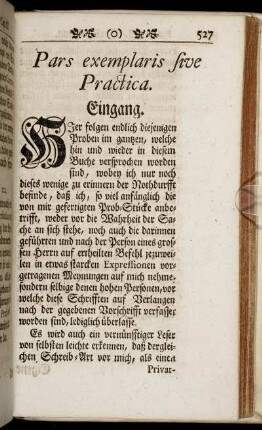 (o) 527
Pars exemplaris sive
Practica.
Eingang.
HIer folgen endlich diejenigen
Proben im gantzen, welche
hin und wieder in diesem
Buche versprochen worden
sind, wobey ich nur noch
dieses wenige zu erinnern der Nothdurfft
befinde, daß ich, so viel anfänglich die
von mir gefertigten Prob-Stücke anbe-
trifft, weder vor die Wahrheit der Sa-
che an sich stehe, noch auch die darinnen
geführten und nach der Person eines gros-
sen Herrn auf ertheilten Befehl jezuwei-
len in etwas starcken Expressionen vor-
getragenen Meynungen auf mich nehme,
sondern selbige denen hohen Personen, vor
welche diese Schrifften auf Verlangen
nach der gegebenen Vorschrifft verfasset
worden sind, lediglich überlasse.
Es wird auch ein vernünfftiger Leser
von selbsten leichte erkennen, daß derglei-
chen Schreib-Art vor mich, als einen
Privat-